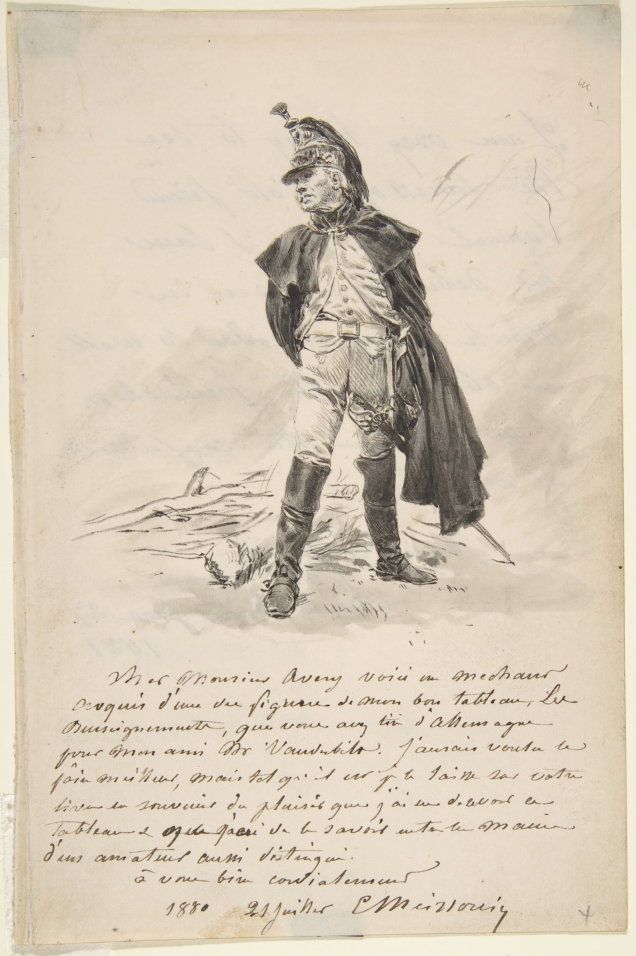 Cher Monsieur Avery voici un mechant
croquis d'une des figures de mon bon tableau, Les
Renseignements, que vous avez tiré d'Allemagne
pour mon ami Mr Vanderbilt. j'aurais voulu le
faire meilleur, mais tel qu'il est je le laisse sur votre
livre en souvenir du plaisir que j'ai eu de revoir ce
tableau & que j'ai de le savoir entre les mains
d'un amateur aussi distingué.
à vous bien cordialement
1880 21 Juillet EMeissonier